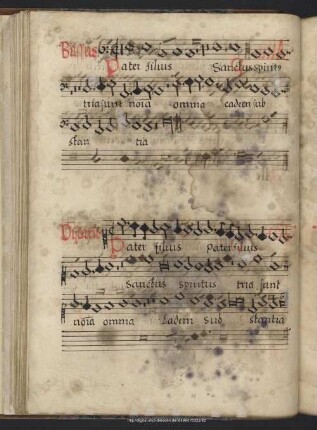 Bassus
Pater filius Sanctus spiritus
tria sunt noīa omnia eadem sub
stan tia
Pater filius Pater filius
Sanctus spiritus tria sunt
noīa omnia eadem sub stantia